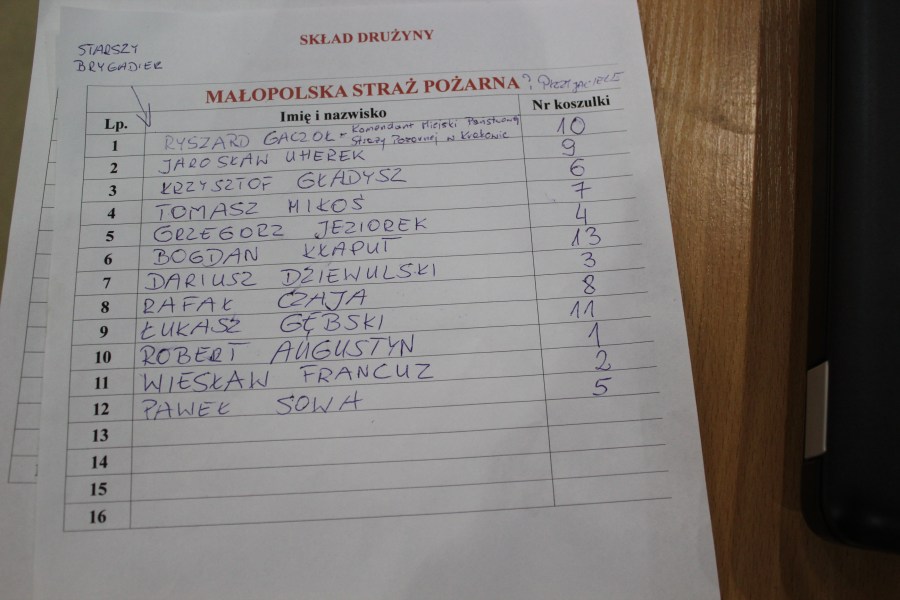 SKŁAD DRUŻYNY
STARSZY
BRYGADIER
MAŁOPOLSKA STRAŻ POŻARNA
Lp. Imię i nazwisko Nr koszulki
1 RYSZARD GACZOŁ - Komendant Miejski Państwowej Straży Pożarnej w Krakowie 10
2 JAROSŁAW UHEREK 9
3 KRZYSZTOF GŁADYSZ 6
4 TOMASZ MIŁOŚ 7
5 GRZEGORZ JEZIOREK 4
6 BOGDAN KŁAPUT 13
7 DARIUSZ DZIEWULSKI 3
8 RAFAŁ CZAJA 8
9 ŁUKASZ GĘBSKI 11
10 ROBERT AUGUSTYN 1
11 WIESŁAW FRANCUZ 2
12 PAWEŁ SOWA 5
13
14
15
16